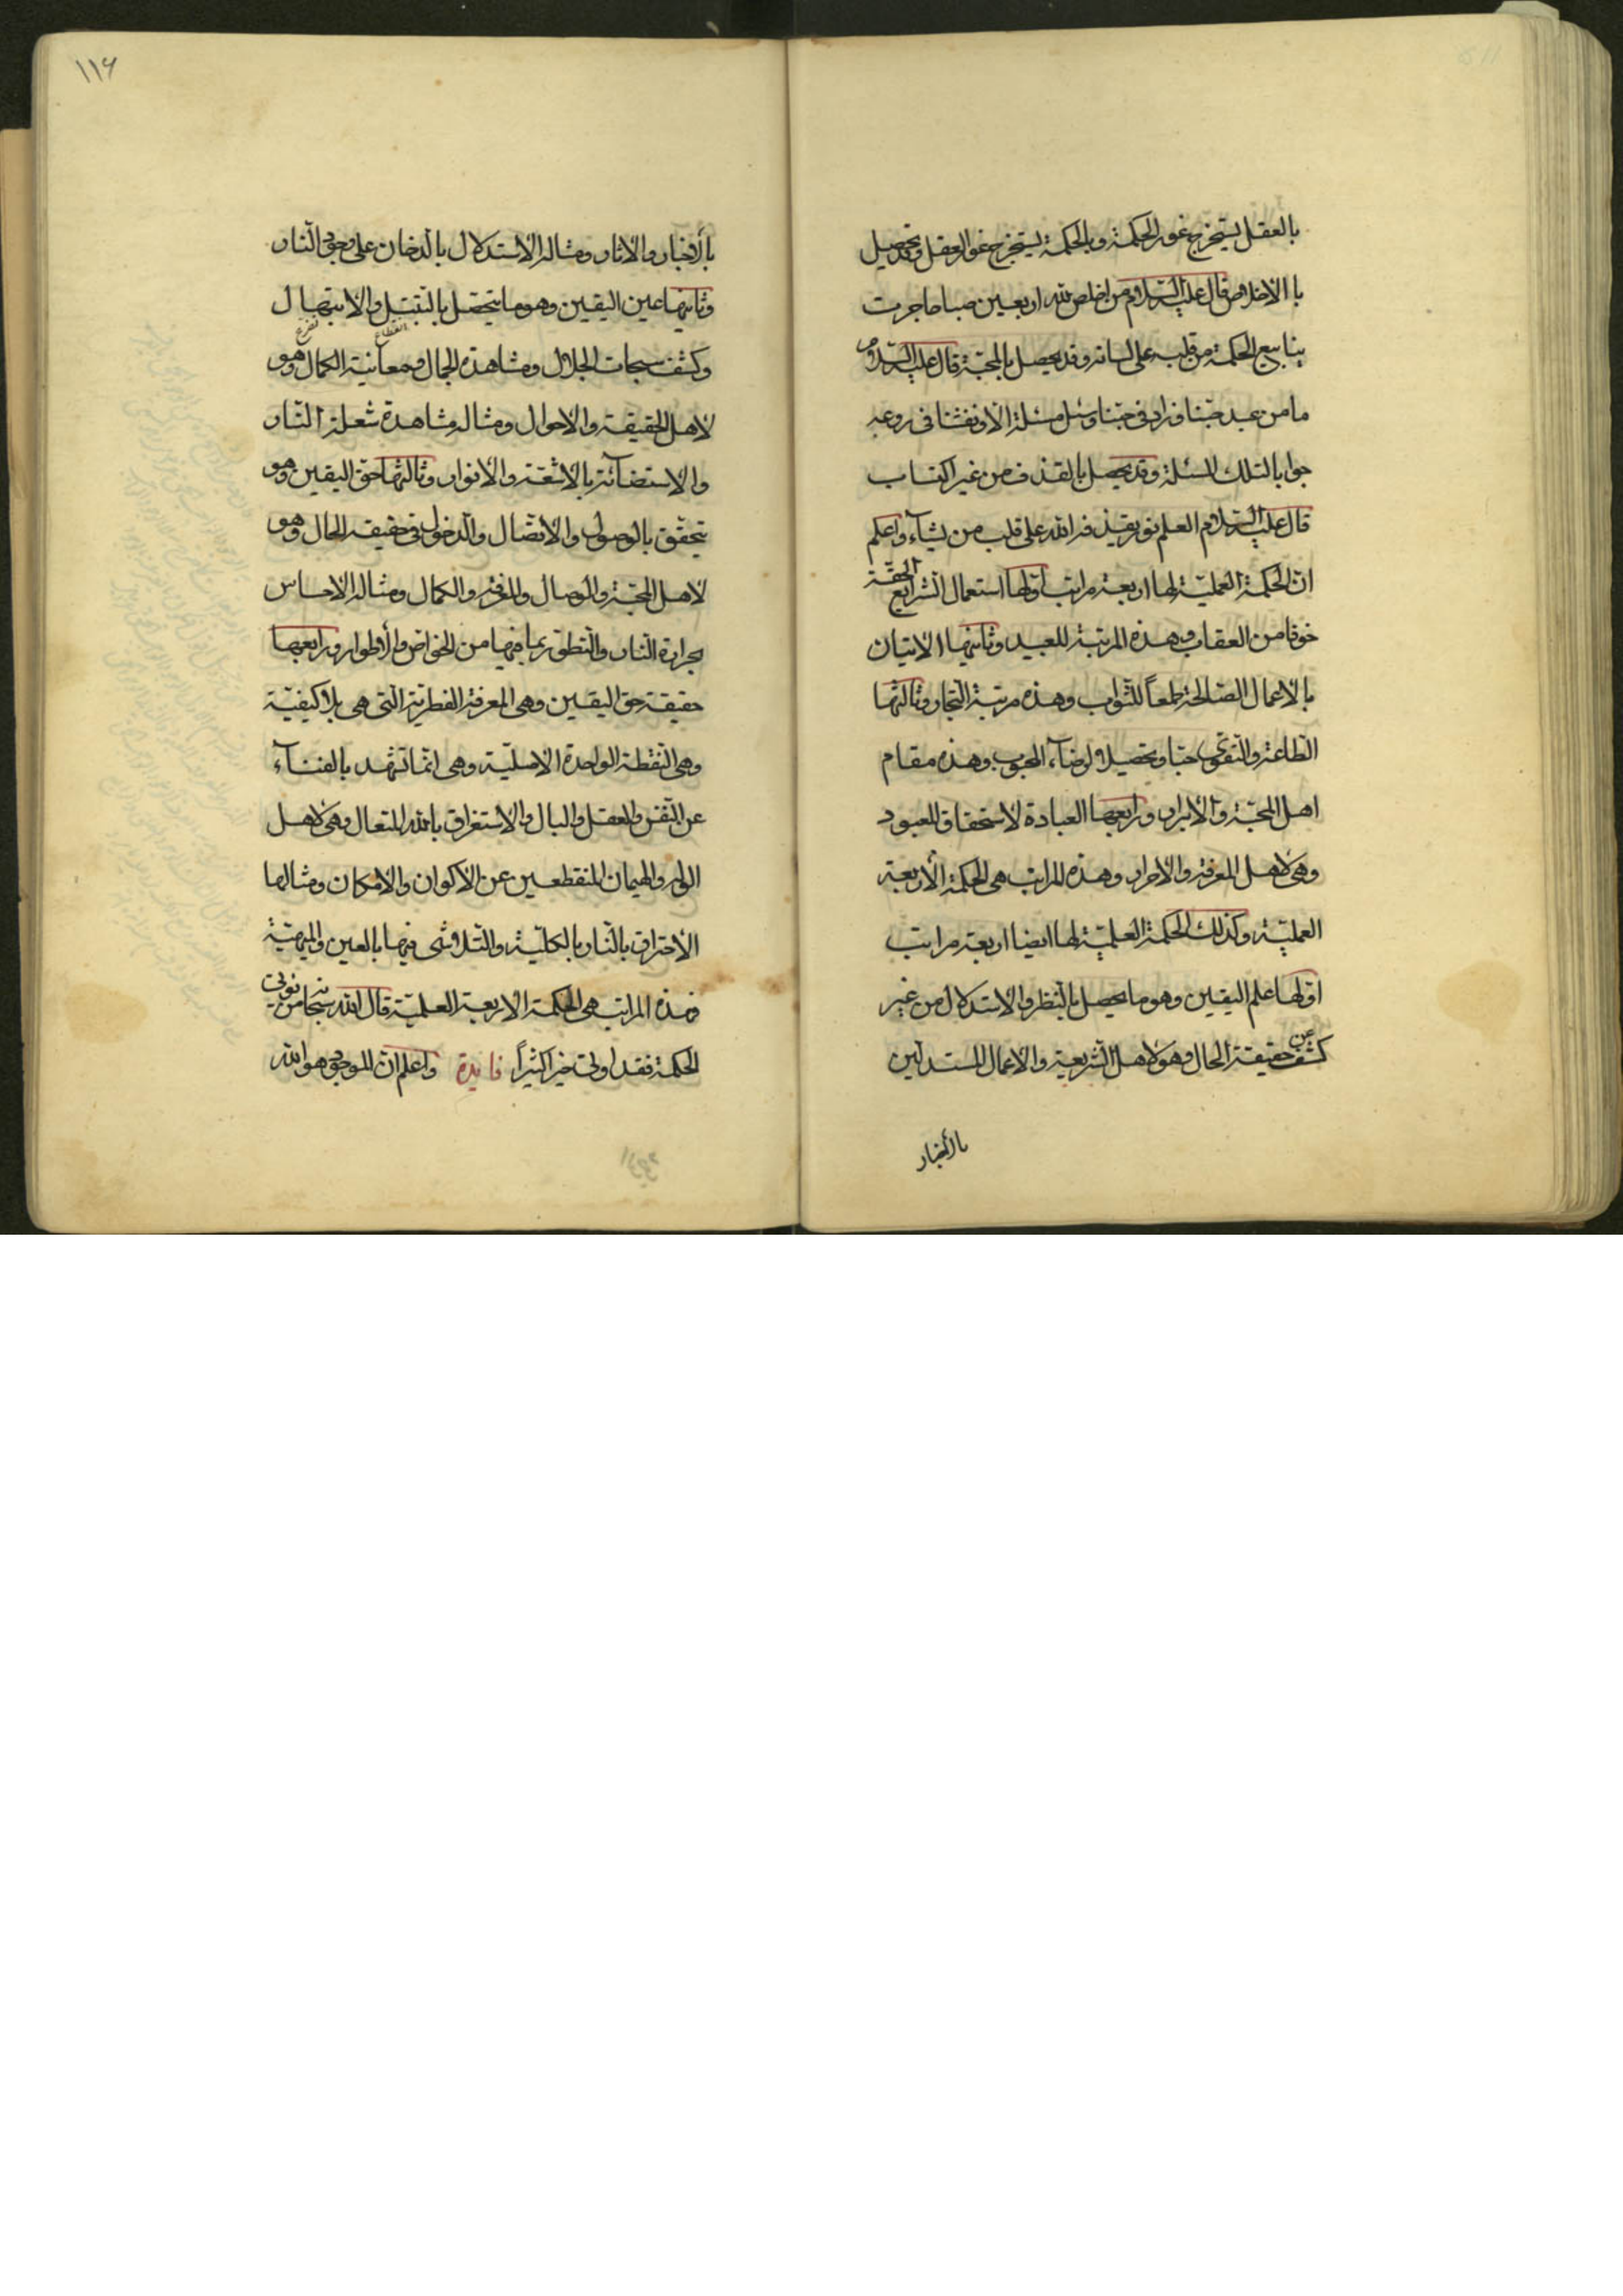 بالعقل يستخرج غور الحكمة وبالحكمة يستخرج غور العقل وقد يحصيل
باالاخلاص قال عليه السلام من اخلص لله اربعين صباحا جرت
ينابيع الحكمة من قلبه على لسانه وقد يحصل بالمحبّة قال عليه السلام
ما من عبد حبّنا وزاد فى حبّنا وسئل مسئلة الا ونفثنا فى روعه
جوابا لتلك المسئلة وقد يحصل بالقذف من غير اكتساب
قال عليه السلام العلم نور يقذفه الله على قلب من يشآء واعلم
انّ الحكمة العمليّة لها اربعة مراتب اوّلها استعمال الشرايع الحقّة
خوفا من العقاب وهذه المرتبة للعبيد وثانيها الاتيان
بالاعمال الصّالحة طمعاً للثّواب وهذه مرتبة التجار وثالثها
الطّاعة والتّقوى حبّا وتحصيلا لرضآء المحبوب وهذه مقام
اهل المحبّة والابرار ورابعها العبادة لاستحقاق المعبود
وهى لاهل المعرفة والاحرار وهذه المراتب هى الحكمة الأربعة
العمليّة وكذلك الحكمة العلميّة لها ايضا اربعة مراتب
اوّلها علم اليقين وهو ما يحصل بالنّظر والاستدلال من غير
كشف عن حقيقة الحال وهو لاهل الشّريعة والاعمال المستدلّين
بالأخبار
١١٦
بالأخبار والاثار ومثاله الاستدلال بالدّخان على وجود النّار
وثانيها عين اليقين وهو ما يتحصّل بالتبتّل والابتهال
انقطاع تضرع
وكشف سبحات الجلال ومشاهدة الجمال ومعاينة الكمال وهو
لاهل الحقيقة والاحوال ومثاله مشاهدة شعلة النّار
والاستضآئة بالاشعّة والانوار وثالثها حقّ اليقين وهو
يتحقّق بالوصول والاتّصال والدّخول فى حقيقه الحال وهو
لاهل المحبّة والوصال والمعرفة والكمال ومثاله الاحساس
بحرارة النّار والتطوّر بما فيها من الخواصّ والأطوار ورابعها
حقيقة حقّ اليقين وهى المعرفة الفطريّة الّتى هى بلا كيفيّة
وهى النّقطة الواحدة الاصليّة وهى انّما تشهد بالفنآء
عن النّفس والعقل والبال والاستغراق بالله المتعال وهى لاهل
الوله والهيمان المنقطعين عن الأكوان والامكان ومثالها
الأحتراق بالنّار بالكليّة والتّلاشى فيها بالعين والمهيّة
فهذه المراتب هى الحكمة الاربعة العلميّة قال الله سبحانه من يؤتى
الحكمة فقد اوتى خيراً كثيراً فايدة واعلم انّ الموجود هو الله